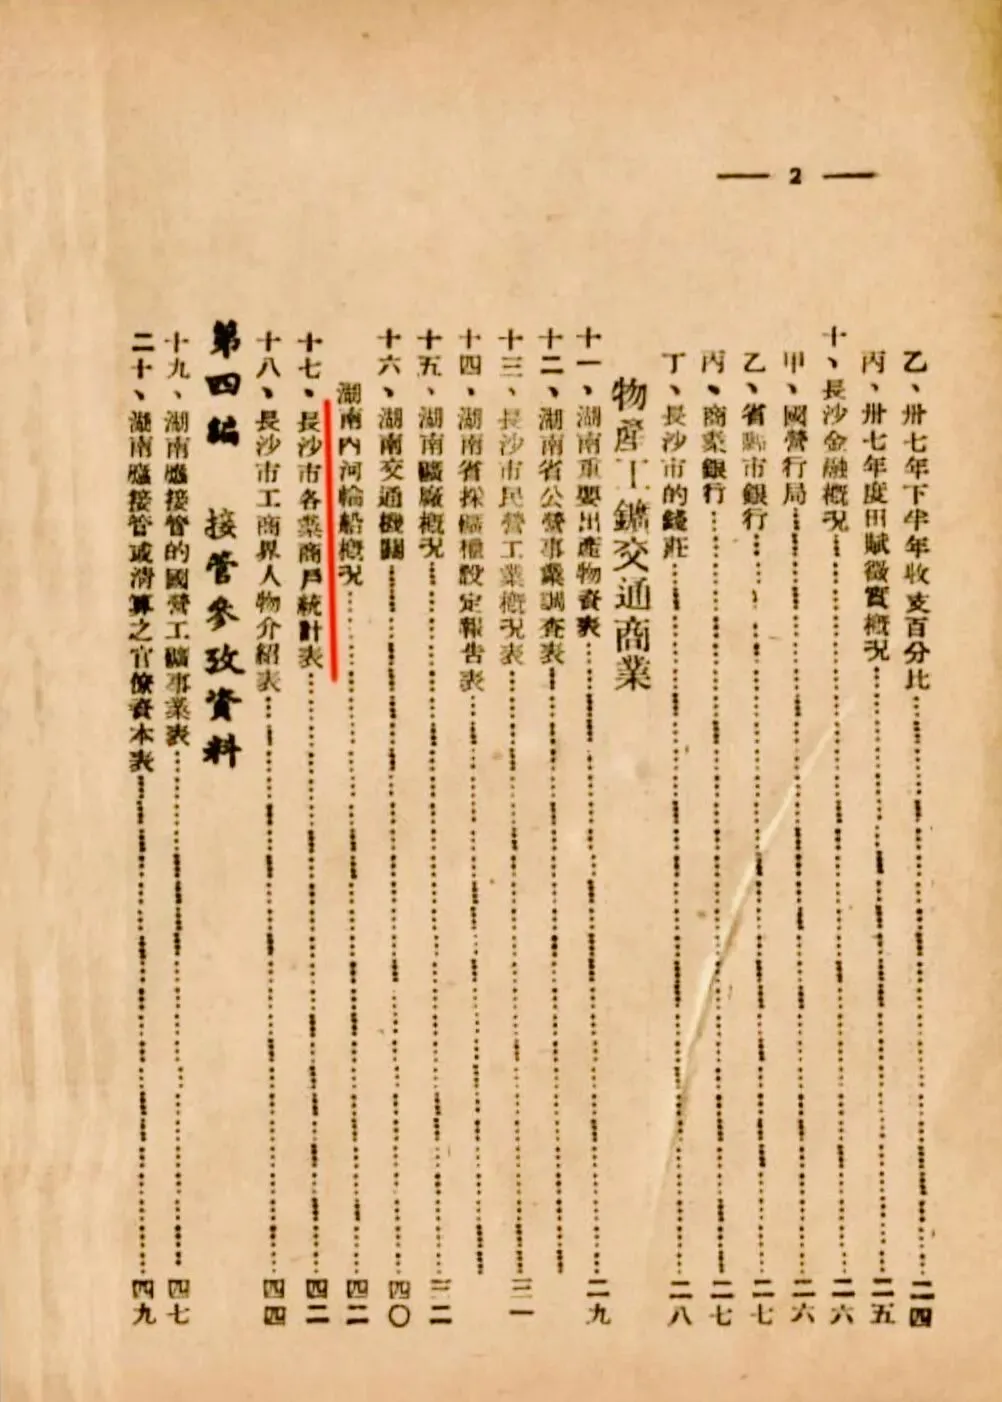 2
乙、卅七年下半年收支百分比 二四
丙、卅七年度田賦徵實概況 二五
十、長沙金融概況 二六
甲、國營行局 二六
乙、省縣市銀行 二七
丙、商業銀行 二七
丁、長沙市的錢莊 二八
物產工鑛交通商業
十一、湖南重要出產物資表 二九
十二、湖南省公營事業調查表
十三、長沙市民營工業概況表 三一
十四、湖南省採鑛權設定報告表
十五、湖南鑛廠概況 三二
十六、湖南交通機關 四〇
湖南內河輪船概況 四二
十七、長沙市各業商戶統計表 四二
十八、長沙市工商界人物介紹表 四四
第四編 接管參攷資料
十九、湖南應接管的國營工鑛事業表 四七
二十、湖南應接管或清算之官僚資本表 四九